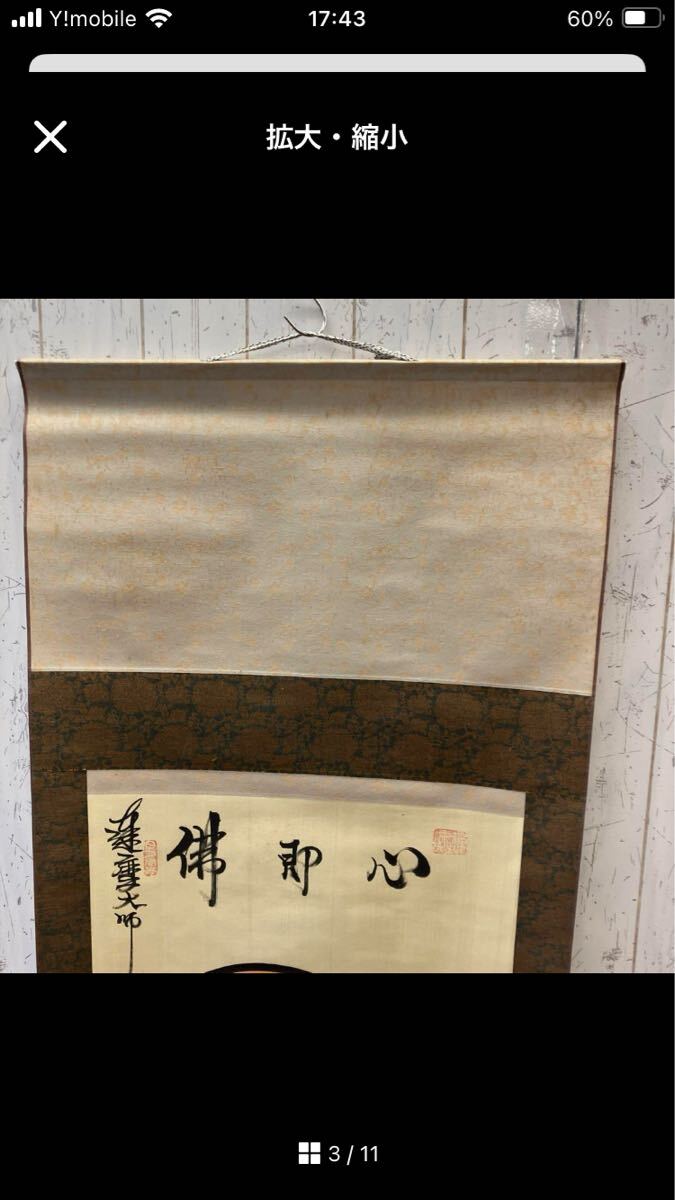 Y!mobile 17:43 60%
拡大・縮小
心即佛
達磨大師
3 / 11